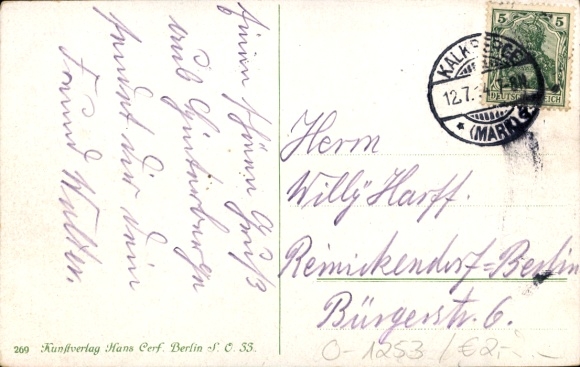 Einen schönen Gruß
aus
sendet dir dein
Freund Walter.
5 5
DEUTSCHES REICH
KALKBERGE
12.7.
* (MARK)
Herrn
Willÿ Harff.
Reinickendorf=Berlin
Bürgerstr. 6.
269 Kunstverlag Hans Cerf. Berlin S. O. 33.
O-1253 / €2,-